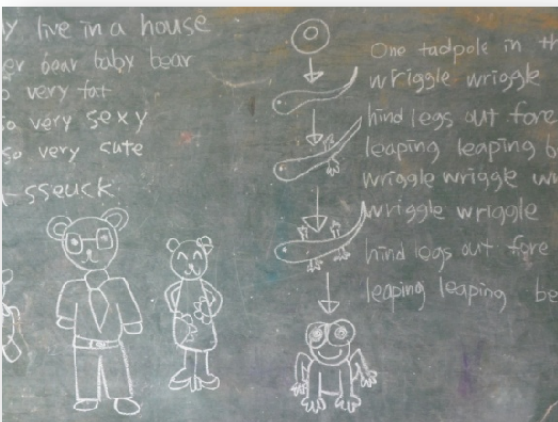 live in a house
bear baby bear
very fat
so very sexy
so very cute
-sseuck
One tadpole in
wriggle wriggle
hind legs out fore
leaping leaping
wriggle wriggle
wriggle wriggle
hind legs out fore
leaping leaping